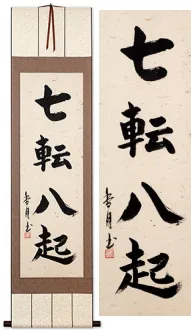 七転八起
七転八起